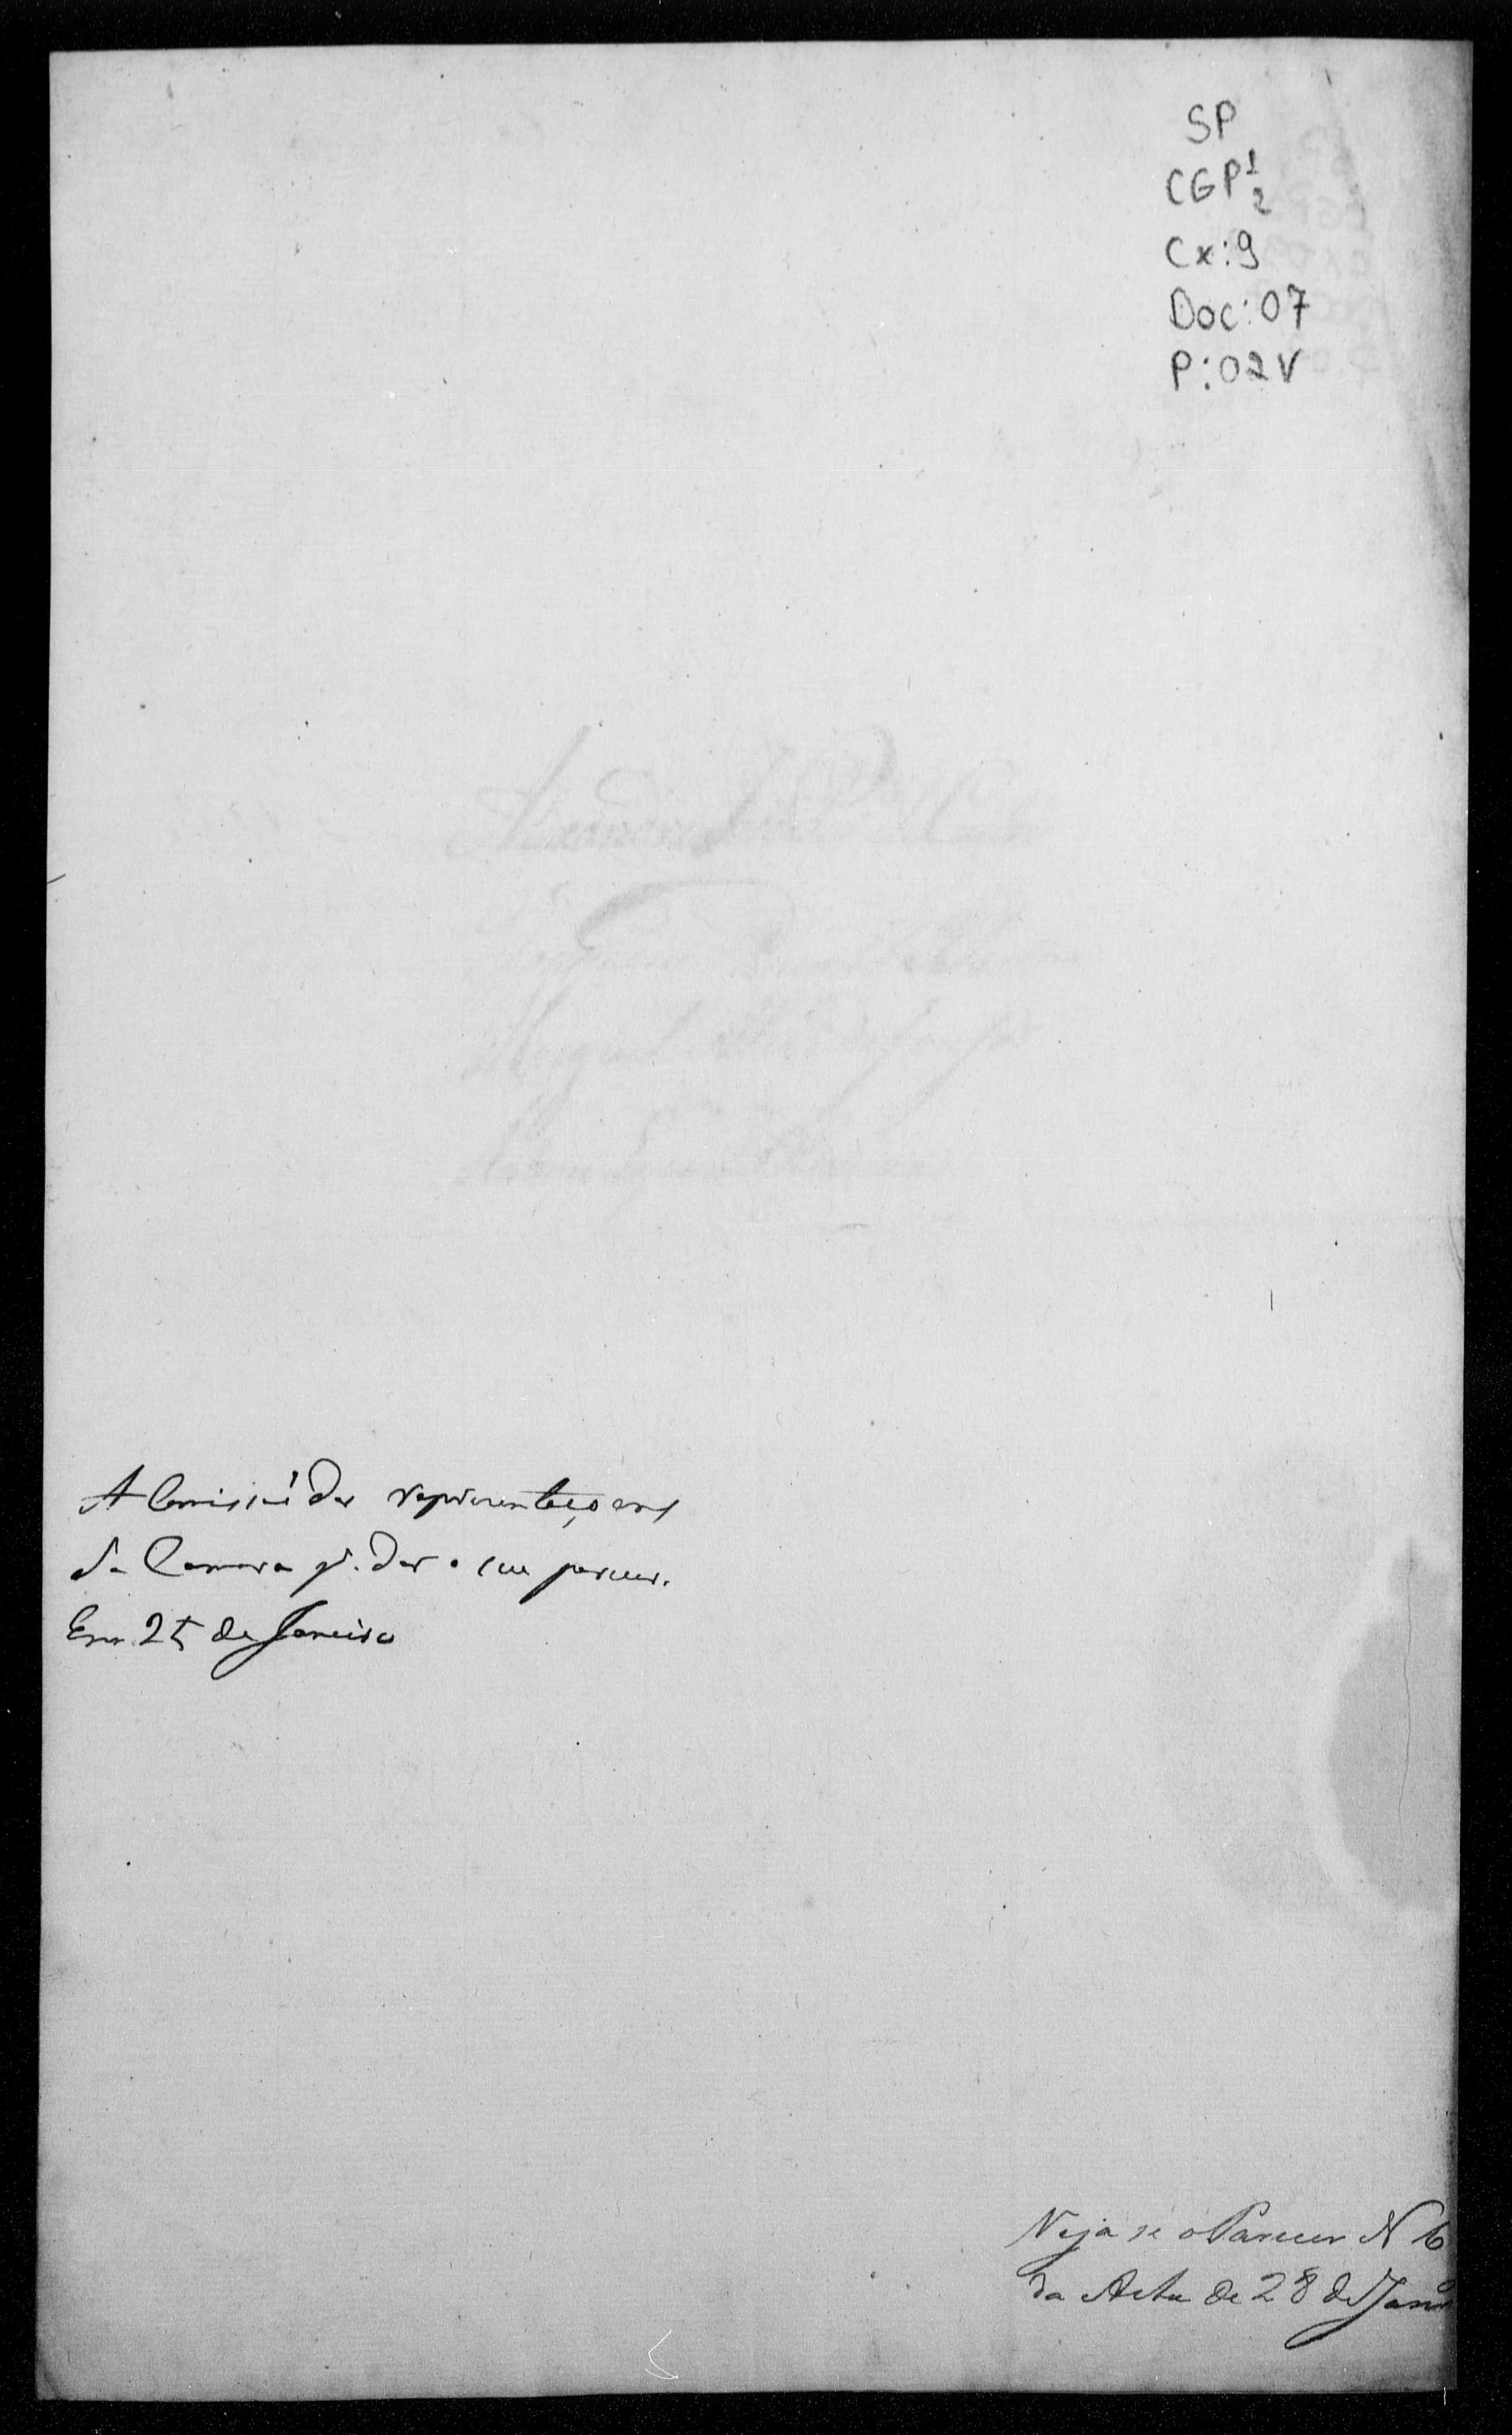 SP
CGP 1/2
Cx: 9
Doc: 07
P: 02V
A Comissaõ das representaçoens
da Camara pª. dar o seu parecer.
Em 25 de Janeiro
Veja se o Parecer N 6
da Acta de 28 de Janrº